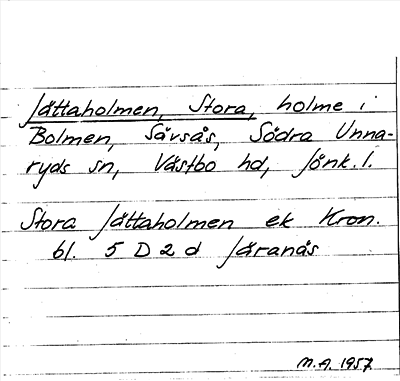 Jättaholmen, Stora, holme i
Bolmen, Sävsås, Södra Unna-
ryds sn, Västbo hd, Jönk. l.
Stora Jättaholmen ek Kron.
bl. 5 D 2 d Järanäs
M.A. 1957